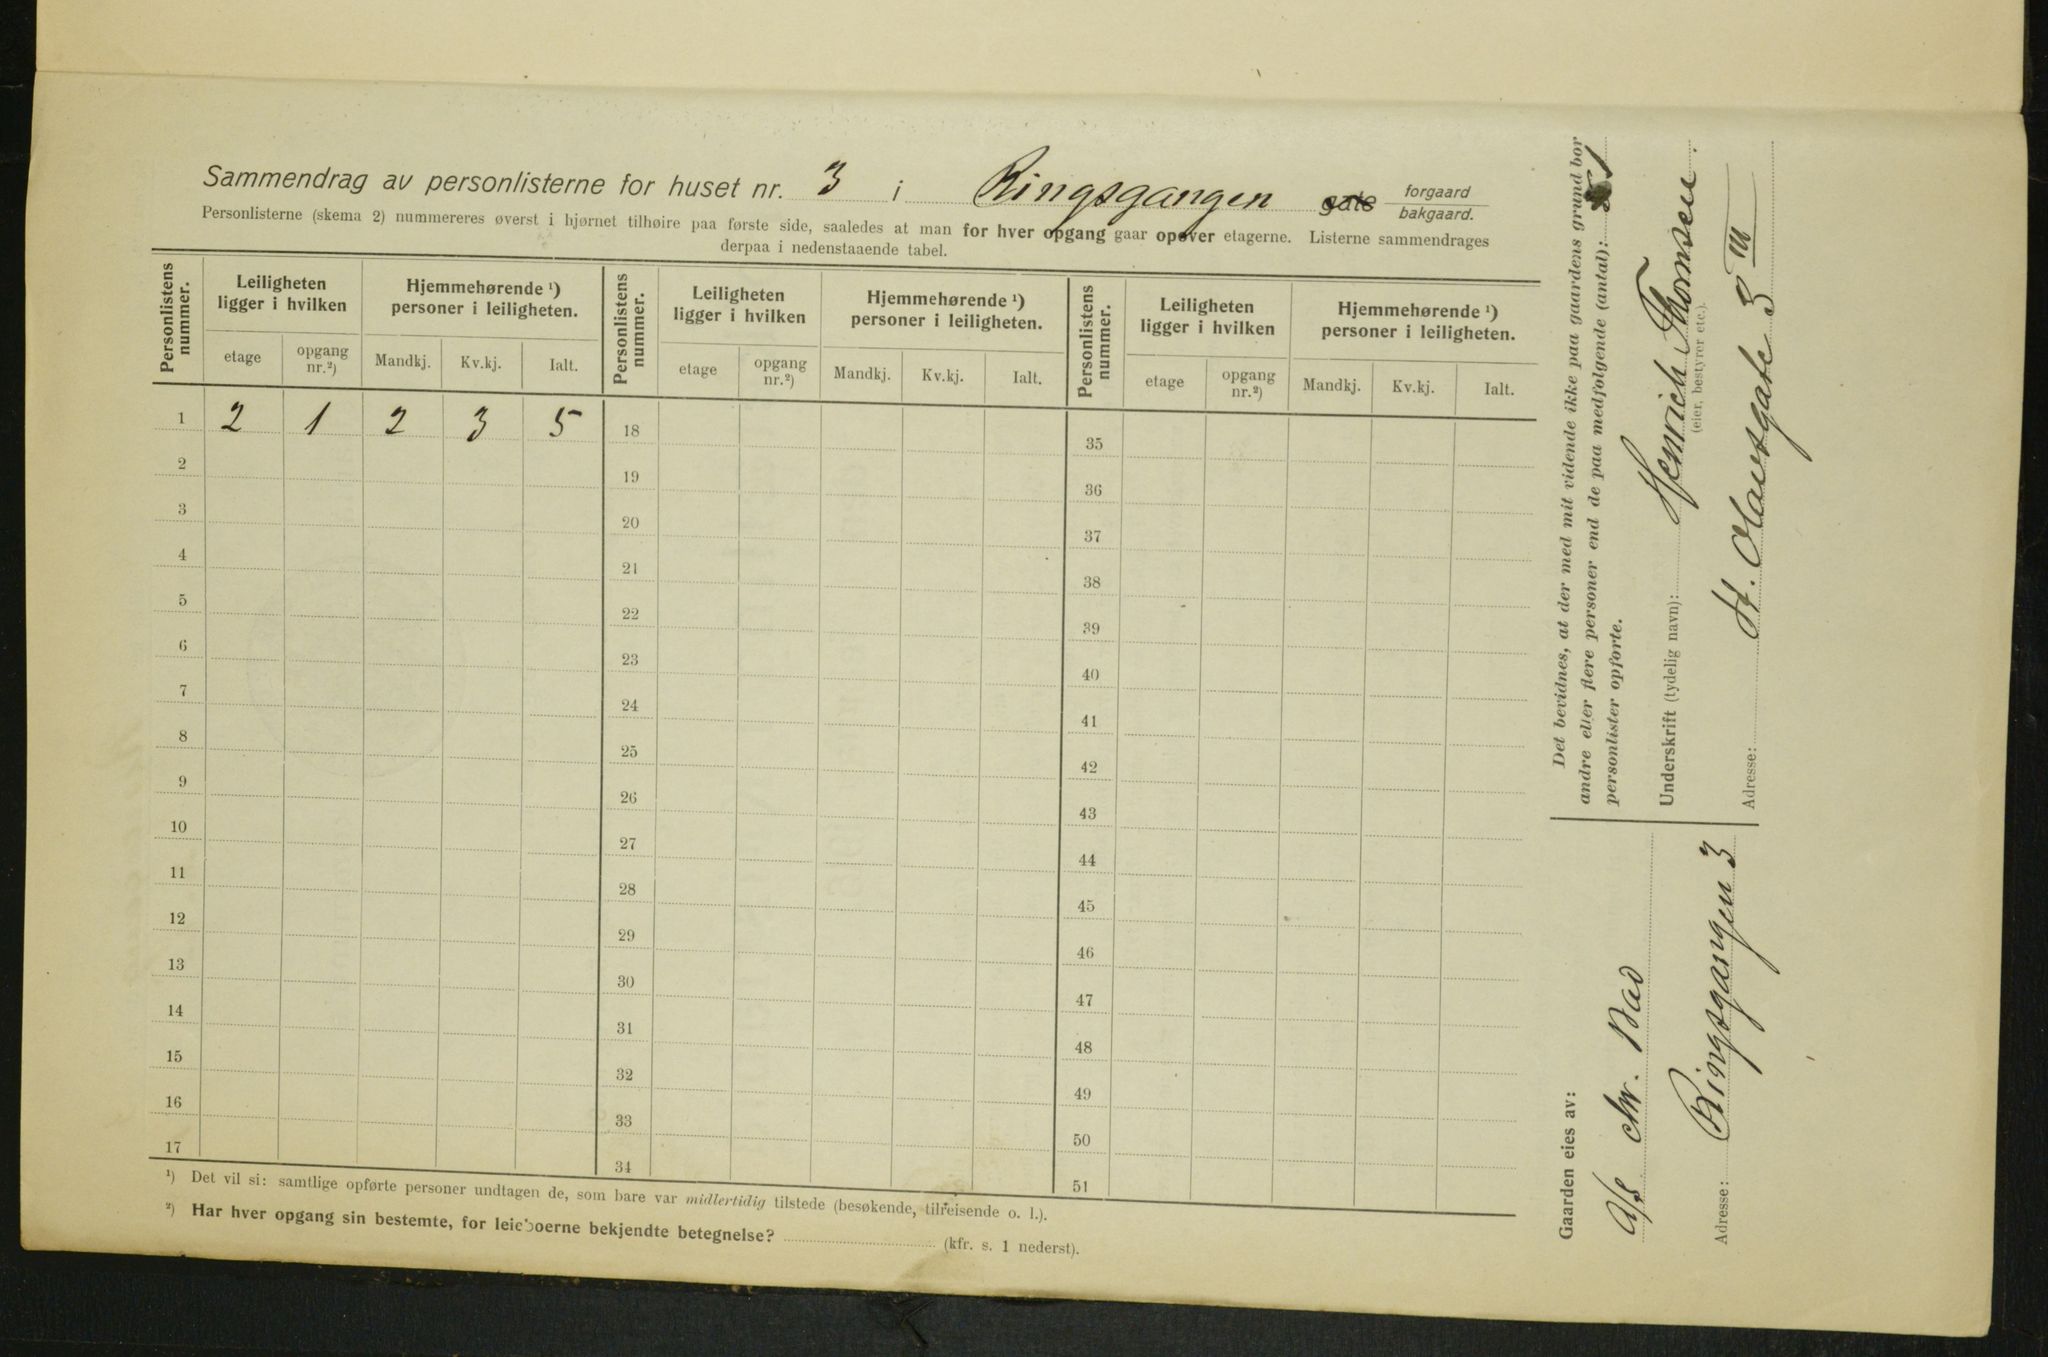 Sammendrag av personlisterne for huset nr. 3 i Ringsgangen gate forgaard bakgaard.
Personlisterne (skema 2) nummereres øverst i hjørnet tilhøire paa første side, saaledes at man for hver opgang gaar opover etagerne. Listerne sammendrages
derpaa i nedenstaaende tabel.
Personlistens nummer. Leiligheten ligger i hvilken Hjemmehørende ¹) personer i leiligheten. Personlistens nummer. Leiligheten ligger i hvilken Hjemmehørende ¹) personer i leiligheten. Personlistens nummer. Leiligheten ligger i hvilken Hjemmehørende ¹) personer i leiligheten.
etage opgang nr.²) Mandkj. Kv.kj. Ialt. etage opgang nr.²) Mandkj. Kv.kj. Ialt. etage opgang nr.²) Mandkj. Kv.kj. Ialt.
1 2 1 2 3 5 18 35
2 19 36
3 20 37
4 21 38
5 22 39
6 23 40
7 24 41
8 25 42
9 26 43
10 27 44
11 28 45
12 29 46
13 30 47
14 31 48
15 32 49
16 33 50
17 34 51
¹) Det vil si: samtlige opførte personer undtagen de, som bare var midlertidig tilstede (besøkende, tilreisende o. l.).
²) Har hver opgang sin bestemte, for leieboerne bekjendte betegnelse? (kfr. s. 1 nederst).
Det bevidnes, at der med mit vidende ikke paa gaardens grund bor
andre eller flere personer end de paa medfølgende (antal): 1
personlister opførte.
Underskrift (tydelig navn): Henrich Thomsen.
(eier, bestyrer etc.).
Adresse: St. Olavsgate 3 III
Gaarden eies av:
A/S Chr. Bad
Adresse: Ringsgangen 3